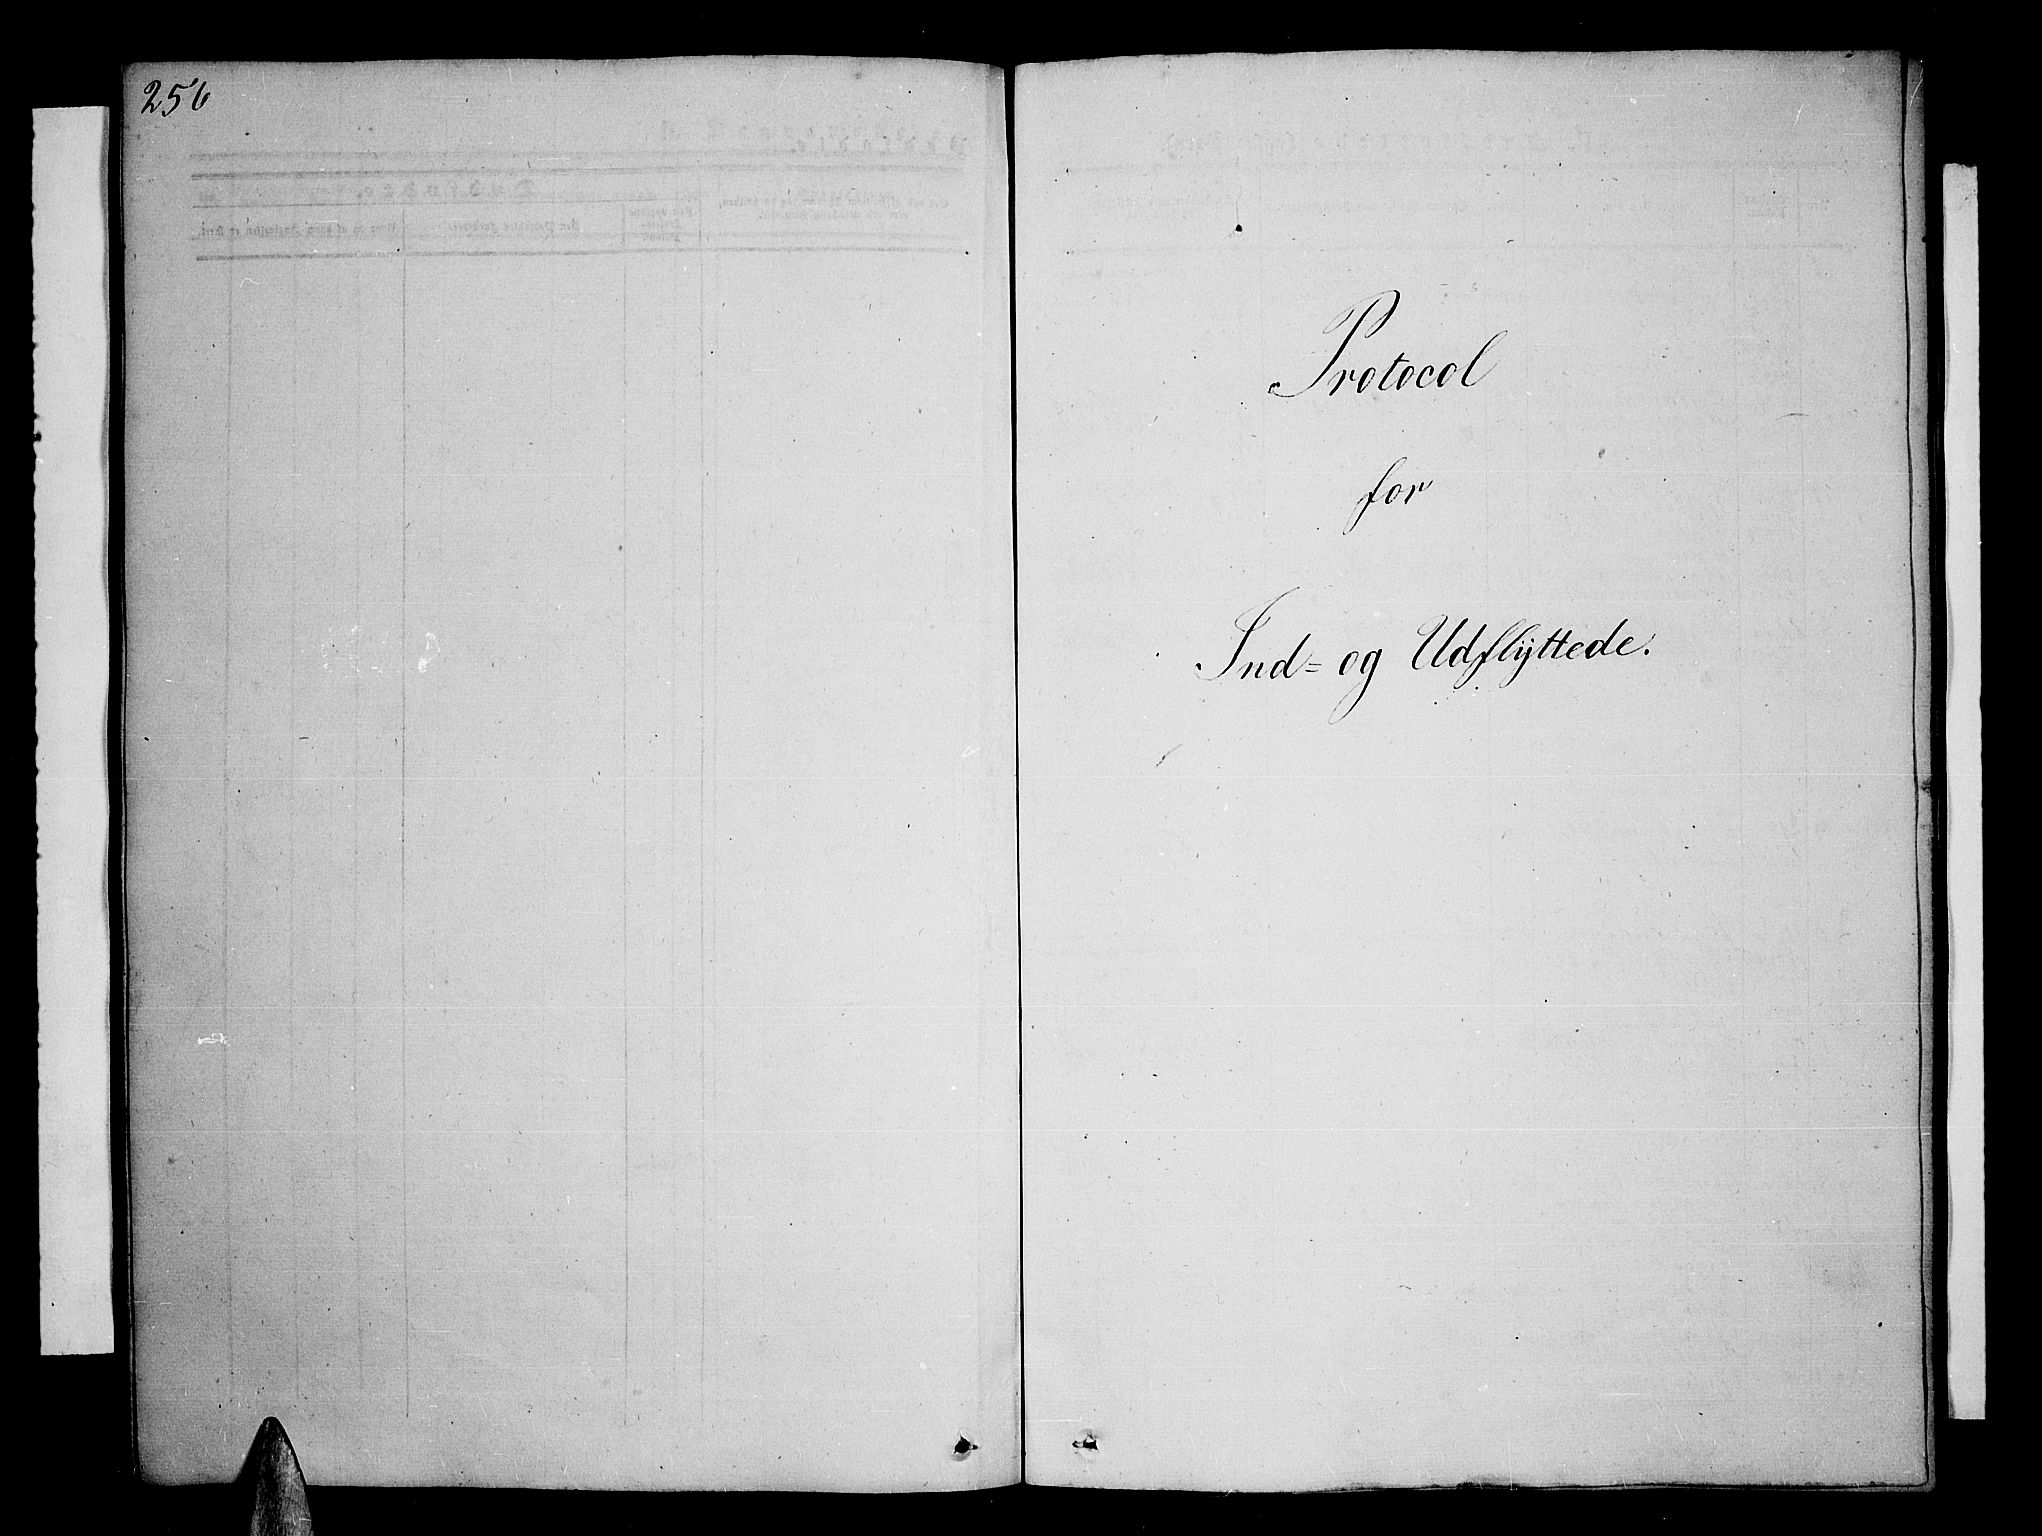 256
Protocol
for
Ind= og Udflyttede.